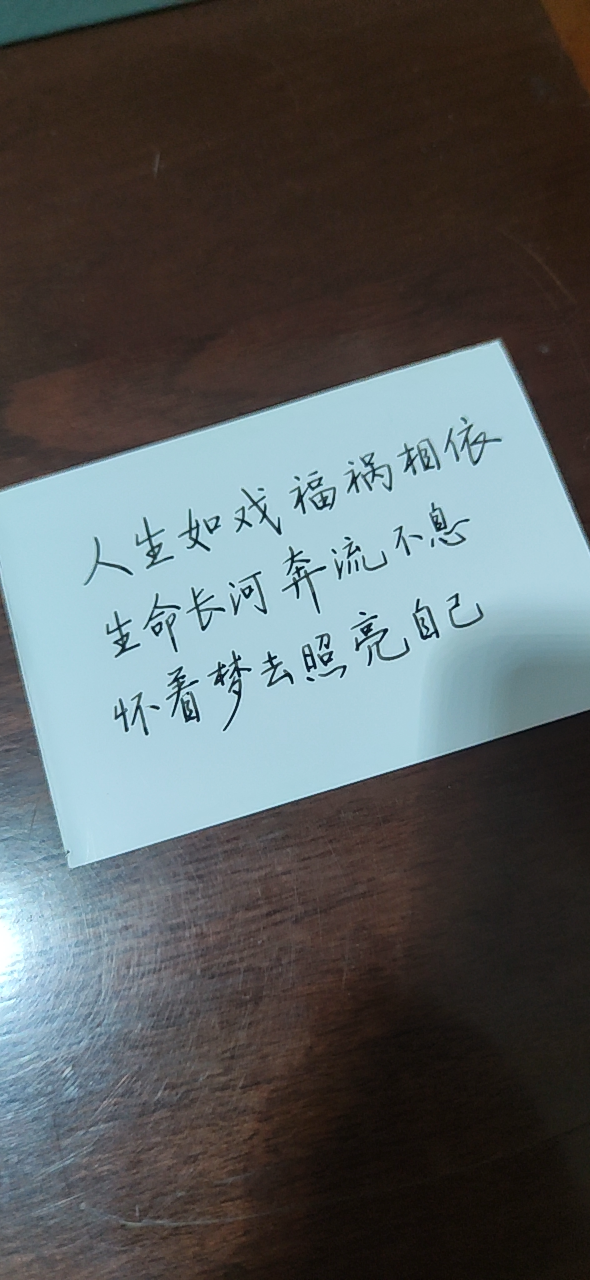 人生如戏 福祸相依
生命长河 奔流不息
怀着梦去照亮自己